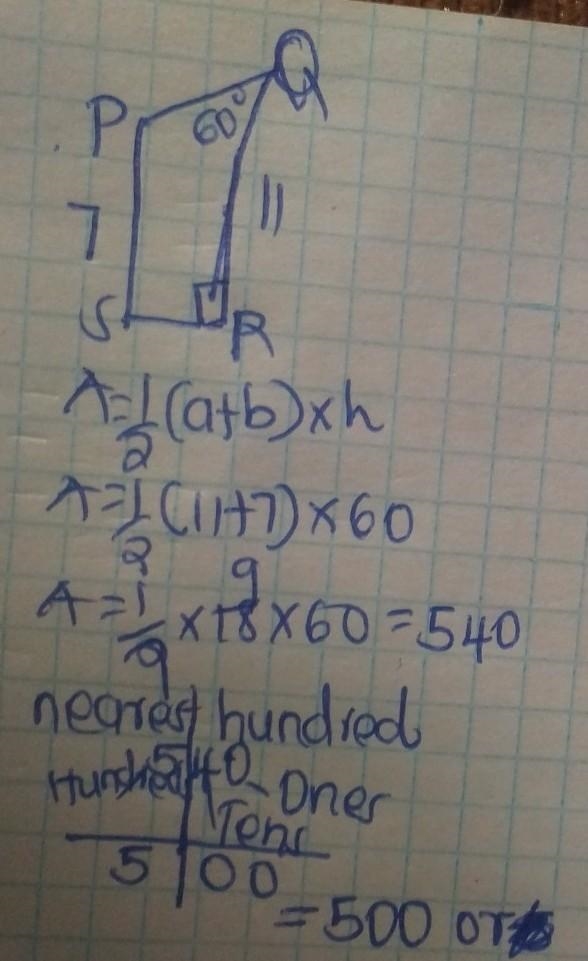 Q
P
60°
7
11
S
R
A=1/2(a+b)×h
A=1/2(11+7)×60
9
A=1/9×18×60=540
nearest hundred
540
Hundred
Ones
Tens
5|00
=500 or